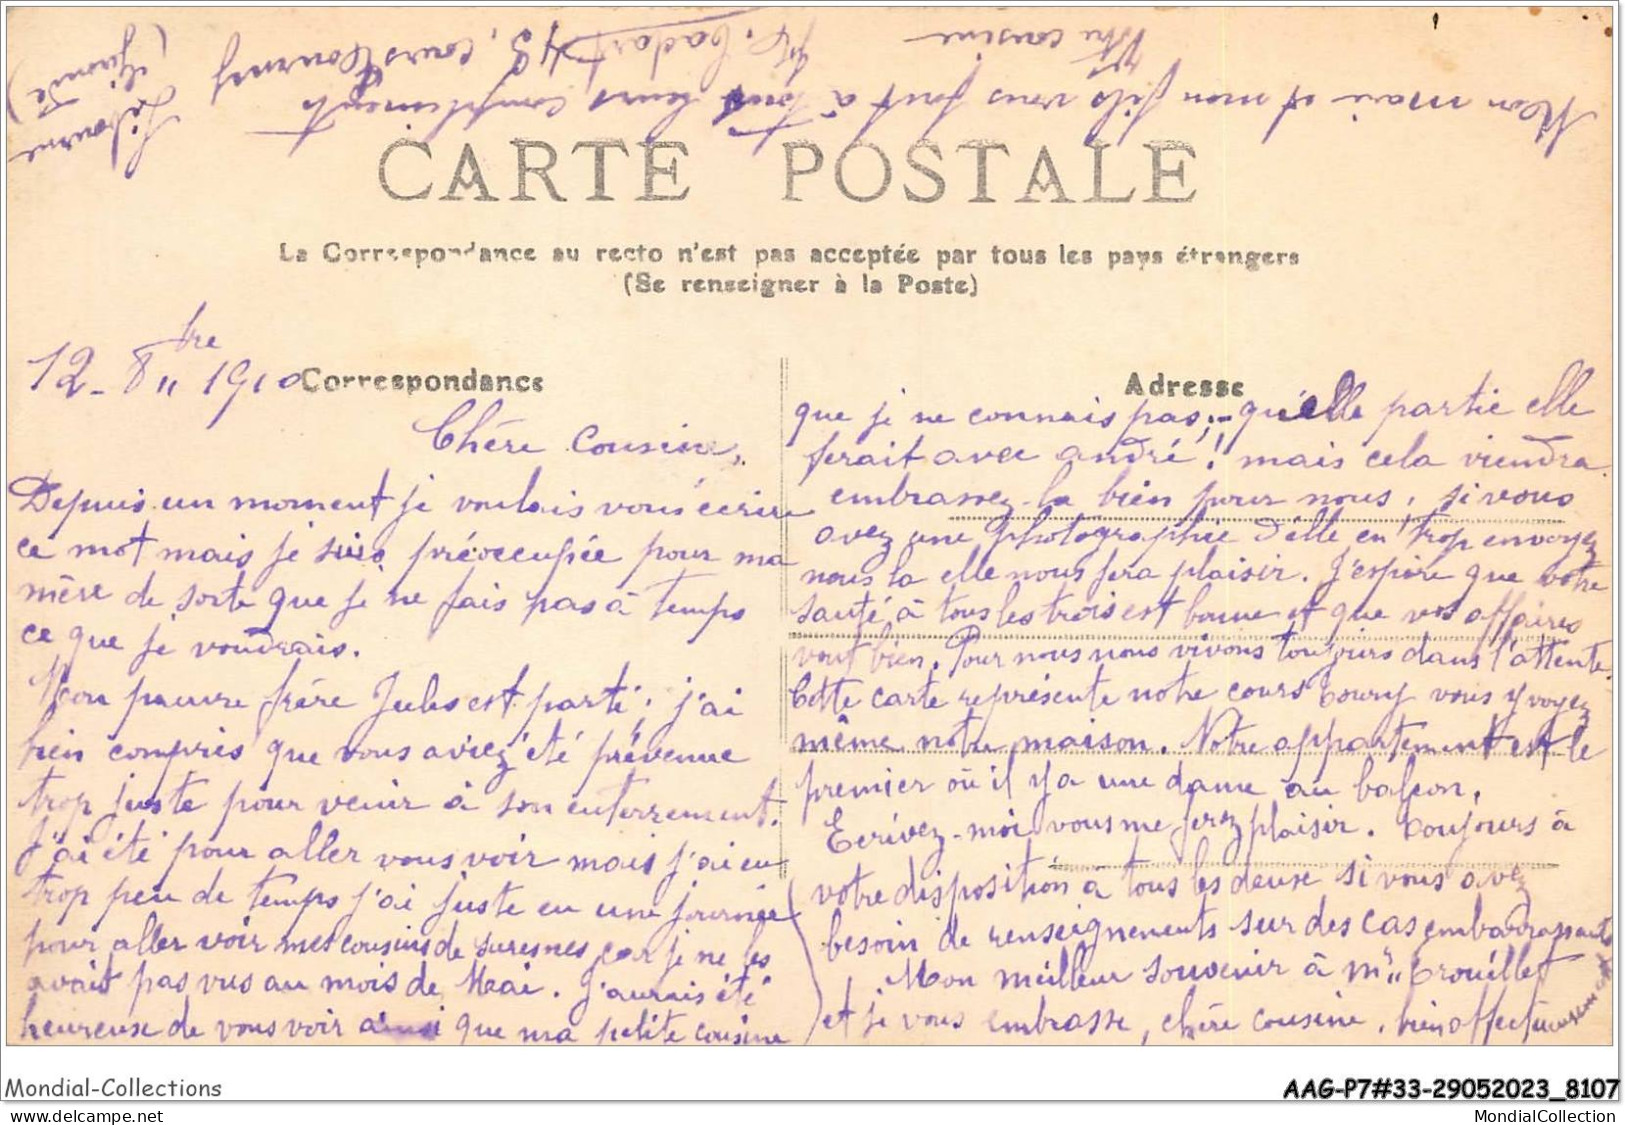 CARTE POSTALE
La Correspondance au recto n'est pas acceptée par tous les pays étrangers
(Se renseigner à la Poste)
Correspondance
12 - 8bre 1910
Chère Cousine,
Depuis un moment je voulais vous écrire
ce mot mais je suis préoccupée pour ma
mère de sorte que je ne fais pas à temps
ce que je voudrais.
Mon pauvre frère Jules est parti ; j'ai
bien compris que vous aviez été prévenue
trop juste pour venir à son enterrement.
J'ai été pour aller vous voir mais j'ai eu
trop peu de temps j'ai juste eu une journée
pour aller voir mes cousins de Suresnes car je ne les
avait pas vus au mois de Mai. J'aurais été
heureuse de vous voir ainsi que ma petite cousine
Adresse
que je ne connais pas ; - qu'elle partie elle
ferait avec andré ! mais cela viendra.
embrassez-la bien pour nous, si vous
avez une photographie d'elle en trop envoyez
nous la elle nous fera plaisir. J'espère que votre
santé à tous les trois est bonne et que vos affaires
vont bien. Pour nous nous vivons toujours dans l'attente.
Cette carte représente notre cours Tourny vous y voyez
même notre maison. Notre appartement est le
premier où il y a une dame au balcon.
Ecrivez-moi vous me ferez plaisir. Toujours à
votre disposition à tous les deux si vous avez
besoin de renseignements sur des cas embarrassants
Mon meilleur souvenir à Mr Trouillet
et je vous embrasse, chère cousine, bien affectueusement
Mon mari et mon fils vous font à tous leurs compliments
Votre cousine
43, cours Tourny
Libourne
(Gironde)
Mondial-Collections
AAG-P7#33-29052023_8107
www.delcampe.net
MondialCollection